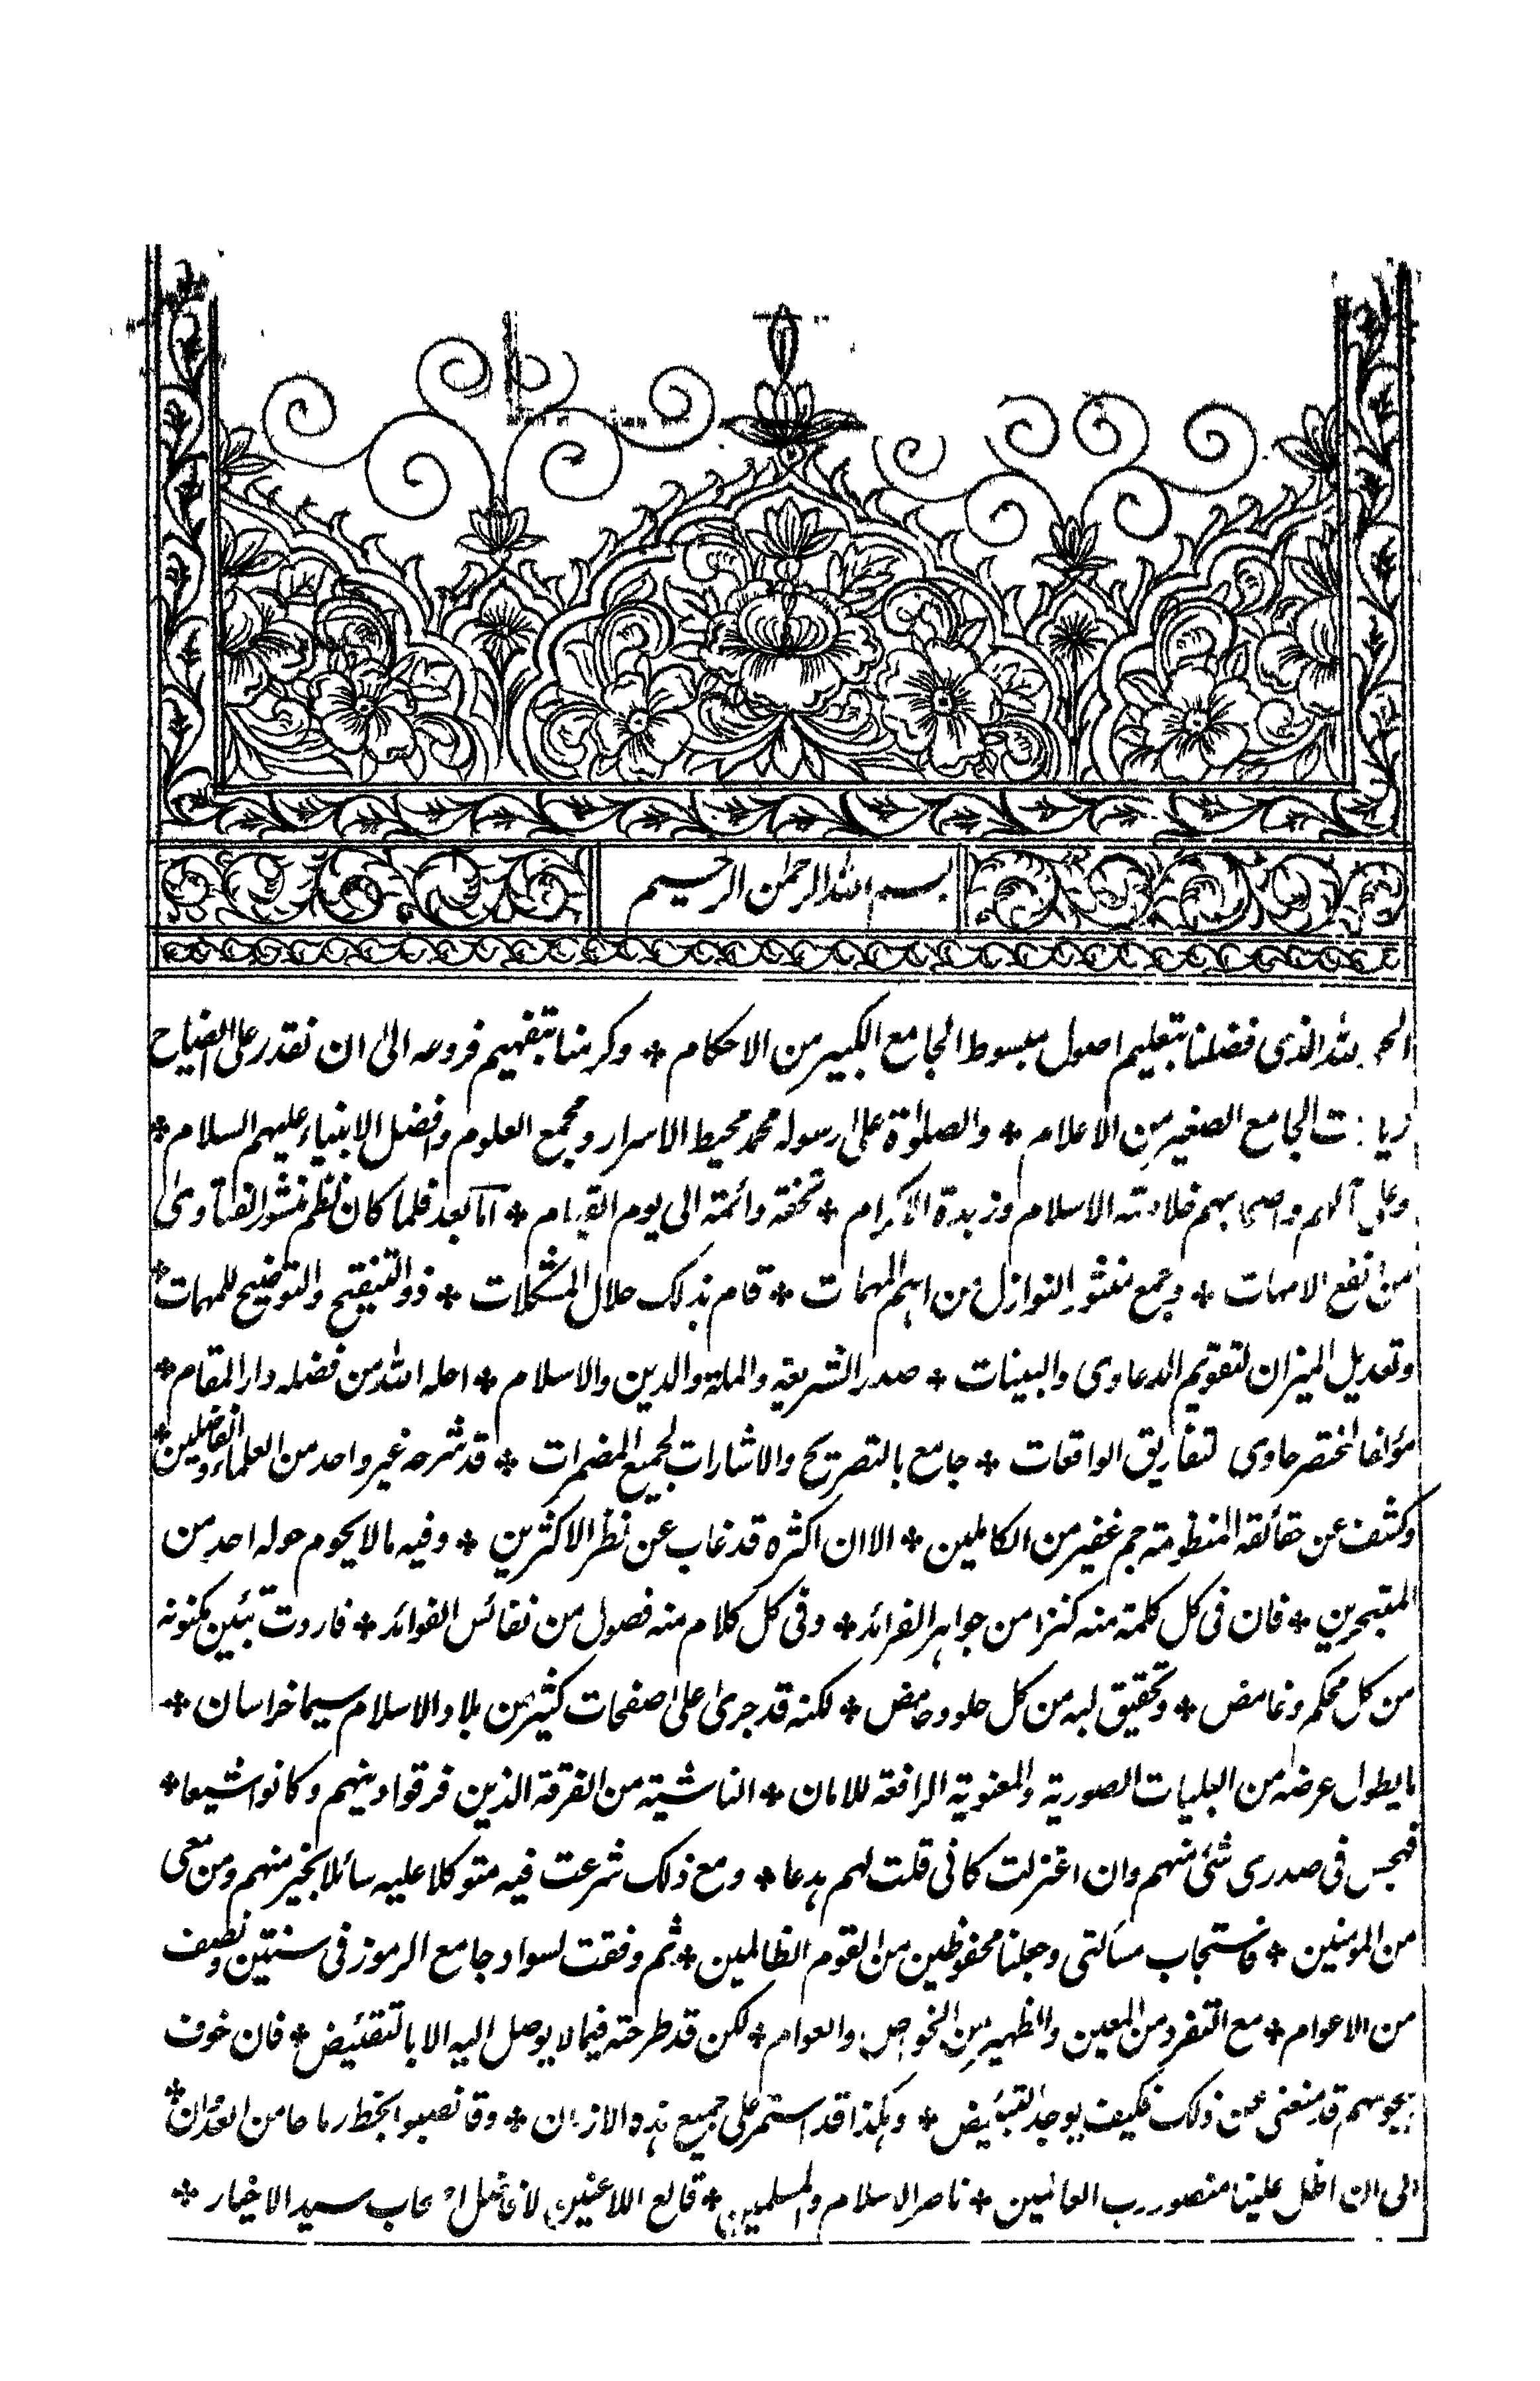 بسم الله الرحمن الرحيم
الحمد لله الذى فضلنا بتعليم اصول مبسوط الجامع الكبير من الاحكام * وكرمنا بتفهيم فروعه الى ان نقدر على ايضاح
الجامع الصغير من الاعلام * والصلوٰة على رسوله محمد محيط الاسرار ومجمع العلوم وافضل الانبياء عليهم السلام *
وعلى آلهم واصحابهم خلاصة الاسلام وزبدة الاكرام * تحفة دائمة الى يوم القيام * اما بعد فلما كان نظم منثور الفتاوى
من انفع الامهات * وجمع منثور النوازل من اهم المهمات * قام بذلك حلال المشكلات * ذو التنقيح والتوضيح للمهمات *
وتعديل الميزان لتقويم الدعاوى والبينات * صدر الشريعة والملة والدين والاسلام * احله الله من فضله دار المقام *
مؤلفا لمختصر حاوى لتفاريق الواقعات * جامع بالتصريح والاشارات لجميع المضمرات * قد شرحه غير واحد من العلماء والفاضلين *
وكشف عن حقائقه المنظومة جم غفير من الكاملين * الا ان اكثره قد غاب عن نظر الاكثرين * وفيه ما لا يحوم حوله احد من
المتبحرين * فان فى كل كلمة منه كنزا من جواهر الفرائد * وفى كل كلام منه فصول من نفائس الفوائد * فاردت تبئين مكنونه
من كل محكم وغامض * وتحقيق لبه من كل حلو وحامض * لكنه قد جرى على صفحات كثير من بلاد الاسلام سيما خراسان *
ما يطول عرضه من البليات الصورية والمعنوية الرافعة للامان * الناشية من الفرقة الذين فرقوا دينهم وكانوا شيعا *
فهجس فى صدرى شئ منهم وان اعتزلت كانى قلت لهم بدعا * ومع ذلك شرعت فيه متوكلا عليه سائلا بخير منهم ومن معى
من المومنين * فاستجاب مسألتى وجعلنا محفوظين من القوم الظالمين * ثم وفقت لسواد جامع الرموز فى سنتين ونصف
من الاعوام * مع التفرد من المعين والظهير من الخواص والعوام * لكن قد طرحته فيما لا يوصل اليه الا بالتقئيض * فان خوف
هجومهم قد منعنى عن ذلك فكيف يوجد التبئيض * وهكذا قد استمر على جميع هذه الازمان * وقد نصبوا لخطر رماحا من العدوان *
الى ان اظل علينا منصور رب العالمين * ناصر الاسلام والمسلمين * قالع اللاعنين لافاضل اصحاب سيد الاخيار *